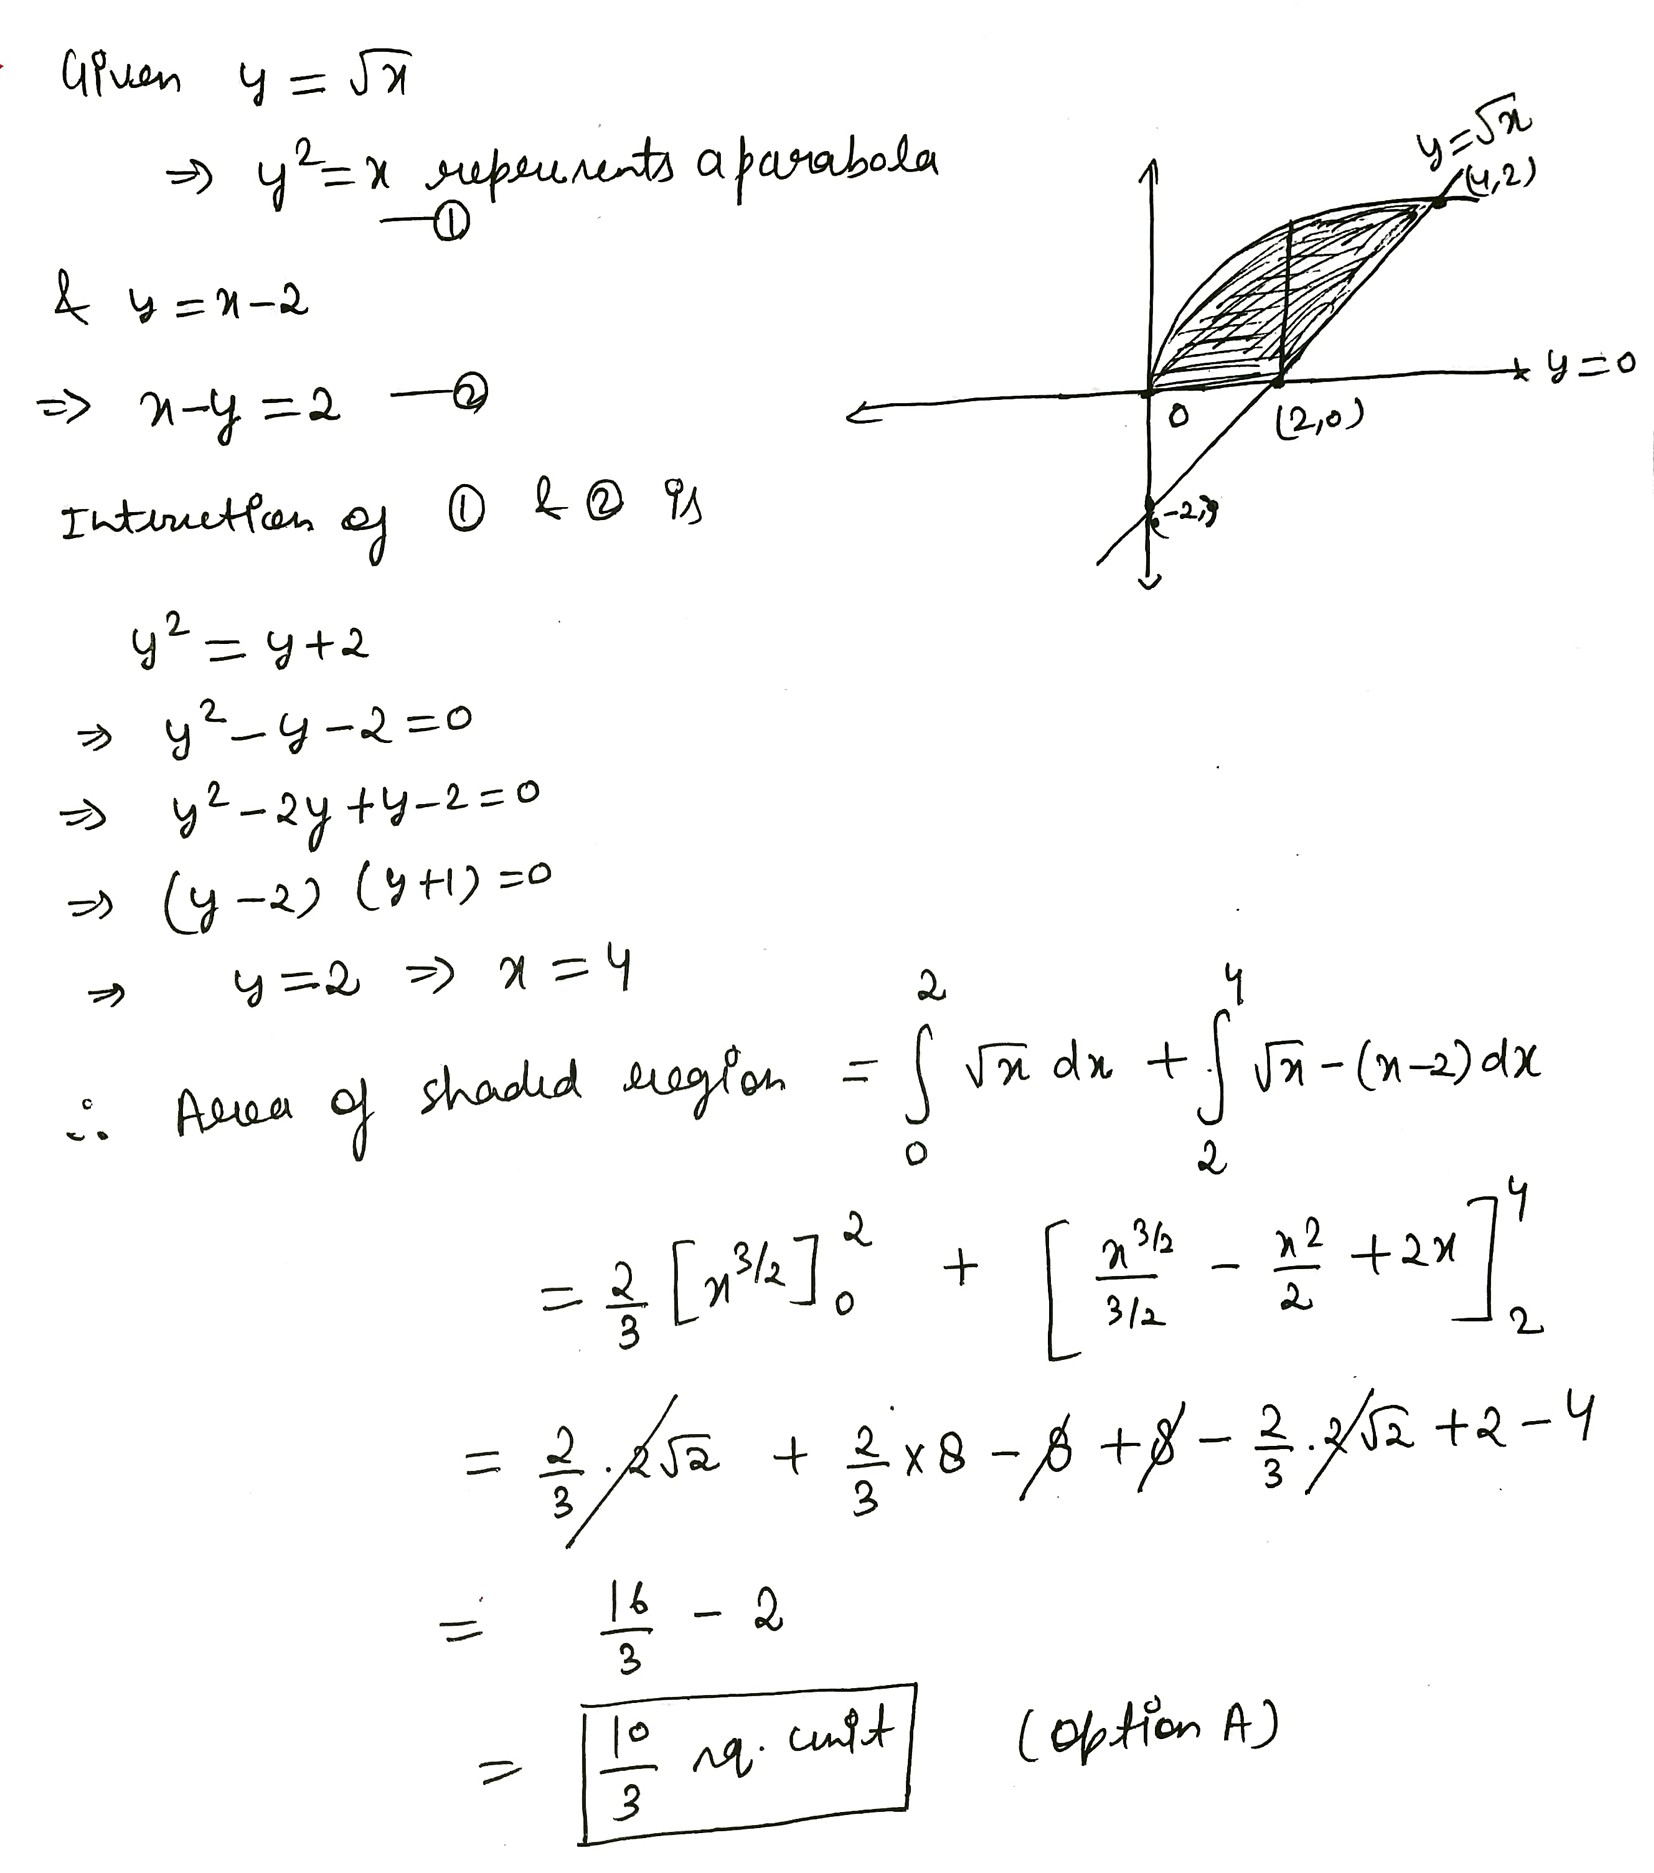 Given y = √x
⇒ y² = x represents a parabola
—①
& y = x-2
⇒ x-y = 2 —②
Intersection of ① & ② is
y² = y+2
⇒ y²-y-2=0
⇒ y²-2y+y-2=0
⇒ (y-2) (y+1)=0
⇒ y=2 ⇒ x=4
y=√x
(4,2)
y=0
0
(2,0)
∴ Area of shaded region = ∫₀² √x dx + ∫₂⁴ √x-(x-2)dx
= 2/3 [x^{3/2}]₀² + [x^{3/2}/3/2 - x²/2 + 2x]₂⁴
= 2/3 · 2√2 + 2/3 × 8 - 8 + 8 - 2/3 · 2√2 + 2 - 4
= 16/3 - 2
= 10/3 sq. unit (option A)